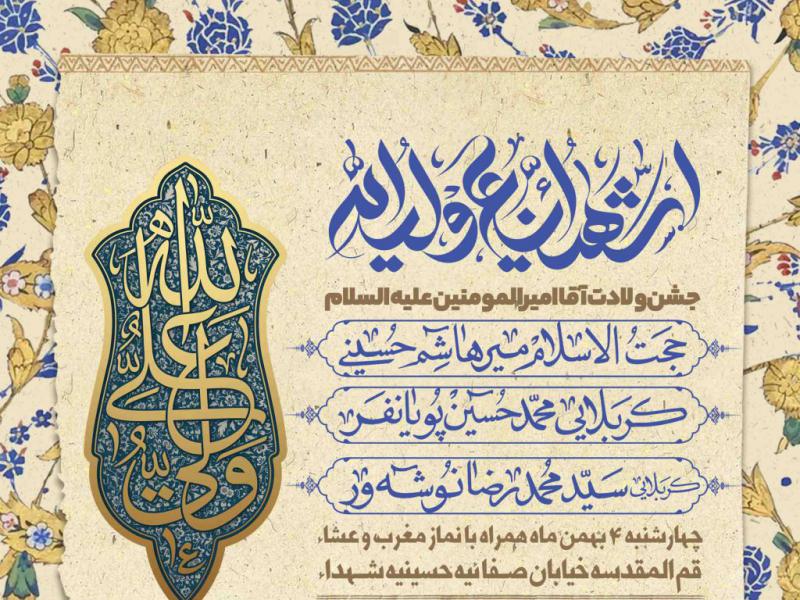 اشهد ان علی ولی الله
جشن ولادت آقا امیرالمومنین علیه السلام
حجت الاسلام میرهاشم حسینی
کربلایی محمدحسین پویانفر
کربلایی سید محمدرضا نوشه ور
چهارشنبه ۴ بهمن ماه همراه با نماز مغرب و عشاء
قم المقدسه خیابان صفائیه حسینیه شهداء
علی ولی الله